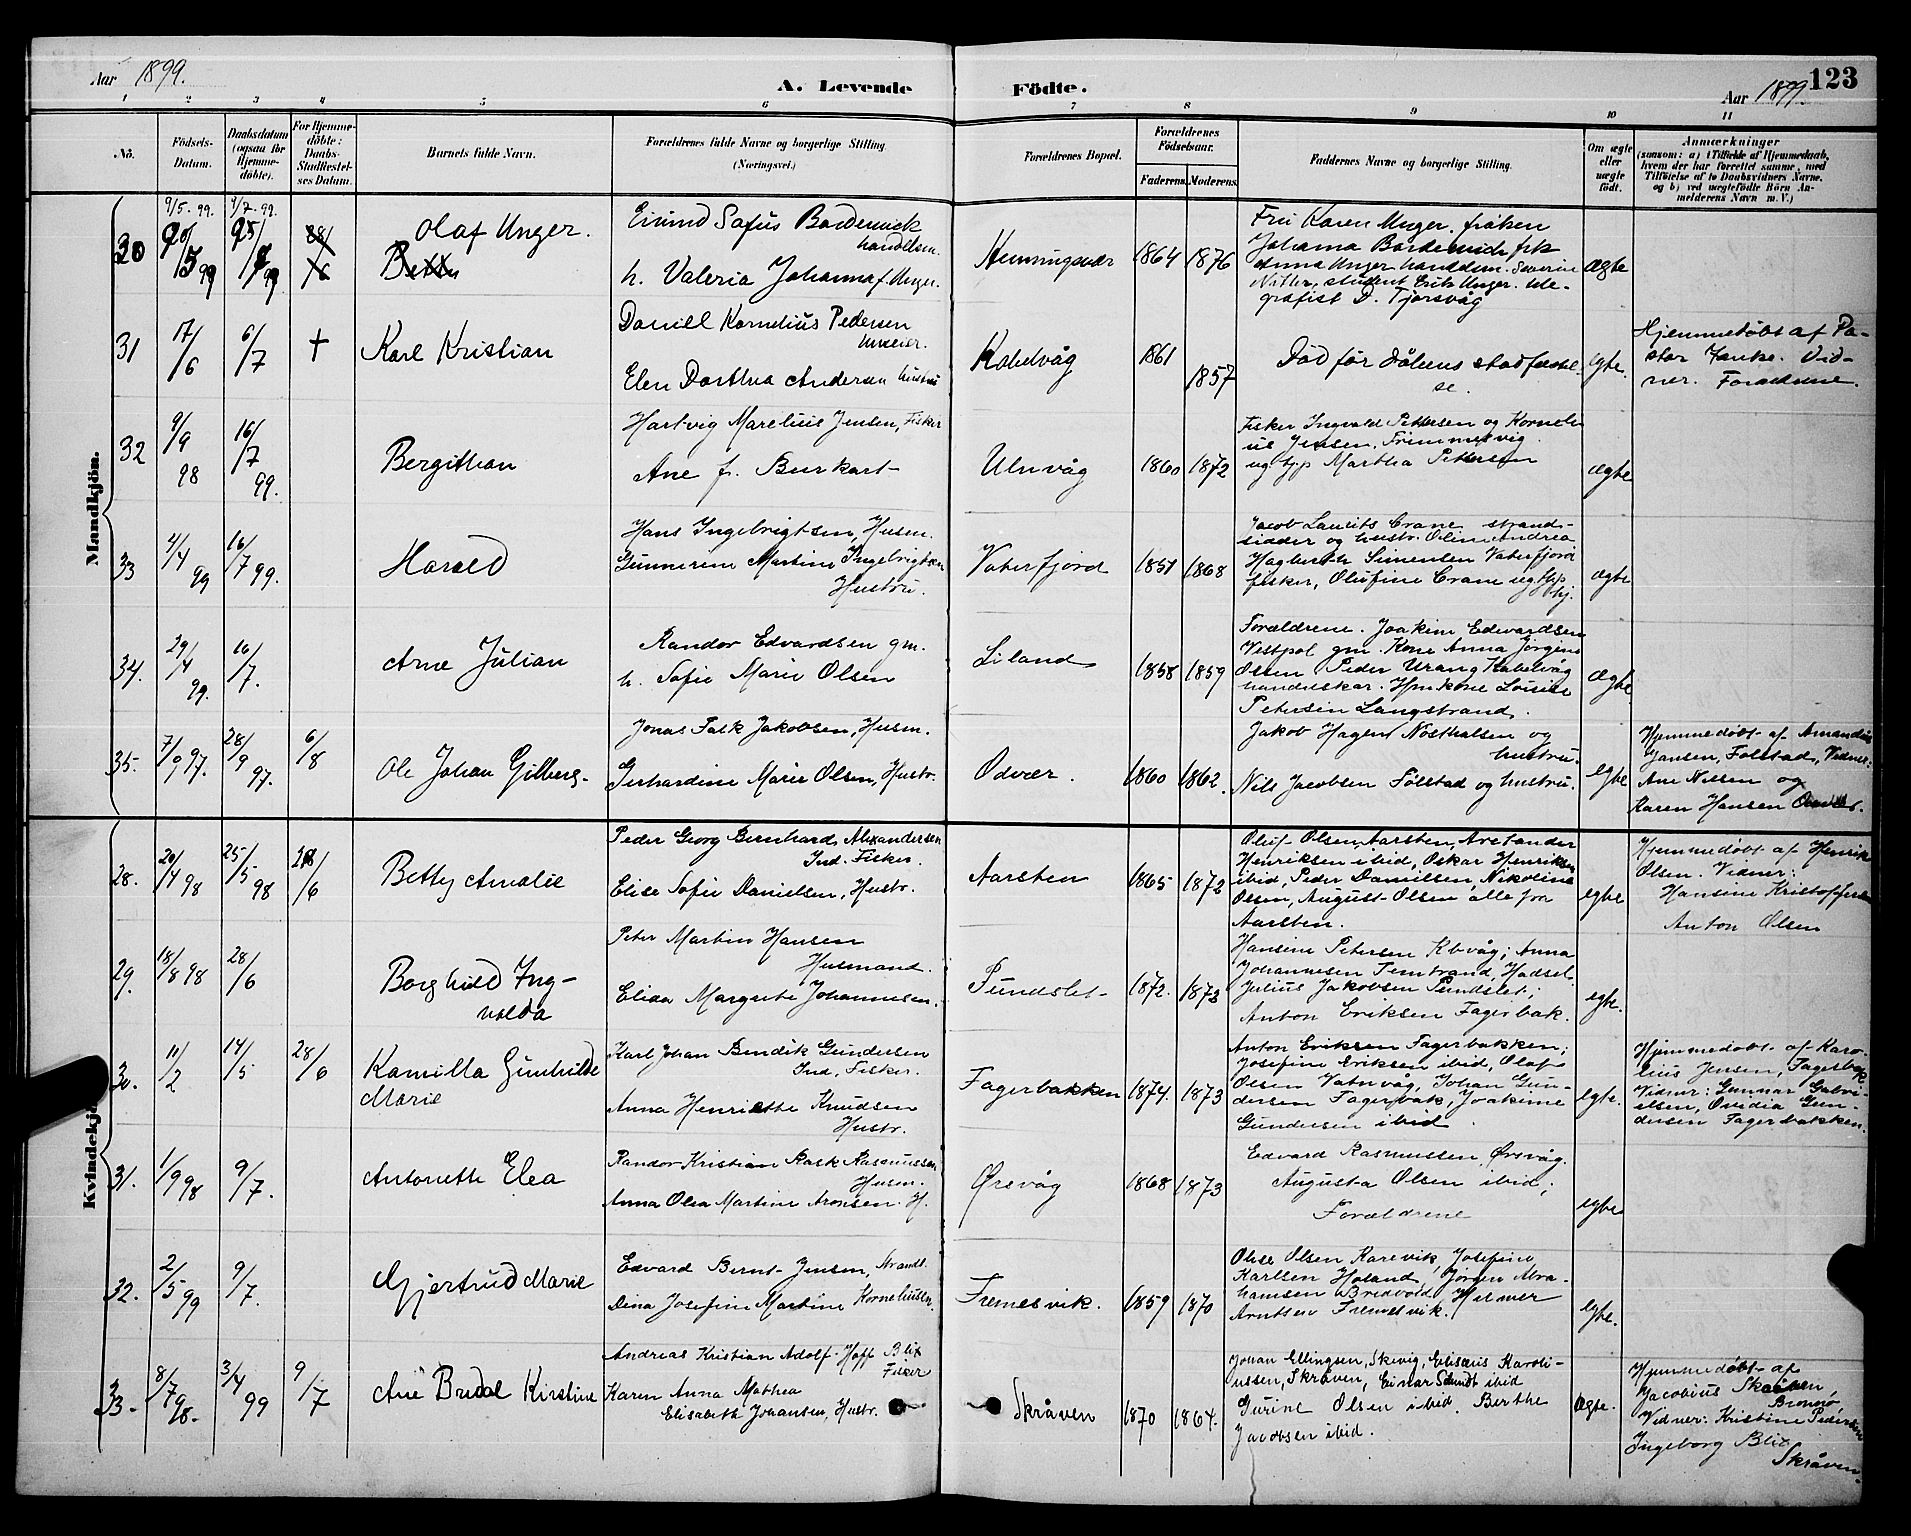 Aar 1899.
A. Levende
Födte.
Aar 1899.
123
1 2 3 4 5 6 7 8 9 10 11
No.
Födsels-
Datum.
Daabsdatum
(ogsaa for
Hjemme-
döbte).
For Hjemme-
döbte:
Daabs-
Stadfæstel-
ses Datum.
Barnets fulde Navn.
Forældrenes fulde Navne og borgerlige Stilling
(Næringsvei.)
Forældrenes Bopæl.
Forældrenes
Födselsaar.
Faderens. Moderens.
Faddernes Navne og borgerlige Stilling.
Om ægte
eller
uægte
født.
Anmærkninger
(saasom: a) i Tilfælde af Hjemmedaab,
hvem der har forrettet samme, med
Tilföielse af to Daabsvidners Navne,
og b) ved uægtefödte Börn An-
melderens Navn m. V.)
Mandkjön.
30
9/5 99.
9/7 99.
Olaf Unger.
Eivind Sofus Bordewick
handelsm.
h. Valeria Johanna f. Unger.
Henningsvær
1864 1876
Fru Karen Unger, frøken
Johanna Bordewick, frk
Anna Unger, handelsm. Severin
Nitter, student Erik Unger. tele-
grafist D. Tjørsvåg
ægte
31
17/6
6/7
+
Karl Kristian
Daniell Kornelius Pedersen
Elen Dorthea Andersen hustru
Kabelvåg
1861
1857
Død før dåbens stadfæstel
se.
egte.
Hjemmedøbt af Pa-
stor Hanke. Vid-
ner. Forældrene.
32
9/9
98
16/7
99.
Bergithon
Hartvig Marelius Jensen, Fisker
Ane f. Burkart
Ulvåg
1860 1872
Fisker Ingvald Pettersen og Korneli
us Jensen, Fremmesvig
ug. tjp Martha Pettersen
ægte
33
4/4
99
16/7 99.
Harald
Hans Ingebrigtsen, Husm.
Gunnerine Martine Ingebrigtsen
Hustru.
Vaterfjord
1851 1868
Jacob Laurits Crane strand-
sidder og hustr. Oline Andrea
Hagberth Simensen Vaterfjord
fisker, Olufine Crane ug. tjp
hj.
ægte
34.
29/4
99.
16/7.
Arne Julian
Randor Edvardsen gm.
h. Sofie Marie Olsen
Liland
1858 1859
Forældrene. Joakim Edvardsen
Vestpol gm. Kone Anna Jørgine
Olsen Peder Urang Kabelvåg
handelskar. Hmkone Lovise
Petersen Langstrand.
ægte
35.
7/9 97.
28/9
97.
6/8
Ole Johan Gilberg.
Jonas Falk Jakobsen, Husm.
Gerhardine Marie Olsen, Hustr.
Odvær.
1860 1862.
Jakob Hagen Nøsthalsen og
hustru.
Nils Jacobsen Følstad og hustru.
egte
Hjemmedøbt af Amandus
Jansen, Følstad, Vidner:
Ane Nilsen og
Karen Hansen
Kvindekjön.
28.
20/4 98
25/5
98
28/6
Betty Amalie
Peder Georg Bernhard Alexandersen
Ind. Fisker.
Elise Sofie Danielsen, Hustr.
Aarsten
1865 1872
Oluf Olsen Aarsten, Arntander
Henriksen ibid, Oskar Henriksen
ibid, Peder Danielsen, Nikoline
Olsen, August Olsen alle fra
Aarsten.
egte
Hjemmedøbt af Henrik
Olsen. Vidner:
Hansine Kristoffersen
Anton Olsen
29.
18/8 98
28/6
Borghild Ing-
valda
Peter Martin Hansen
Husmand.
Elida Margrete Johannesen.
Pundslet
1872. 1873
Hansine Petersen Kbvåg; Anna
Johannesen Temtrand, Hadsel
Julius Jakobsen Pundslet;
Anton Eriksen Fagerbak.
egte.
30.
11/2
14/5
28/6
Kamilla Gunhilde
Marie
Karl Johan Bendik Gundersen
Ind, Fisker.
Anna Henriette Knudsen
Hustr.
Fagerbakken
1874. 1873
Anton Eriksen Fagerbakken;
Josefine Eriksen ibid, Olaf
Olsen Vatnvåg, Johan Gun-
dersen Fagerbak, Joakime
Gundersen ibid.
egte.
Hjemmedøbt af Karo-
lius Jensen, Fagerbak
Vidner: Gunnar Gabri-
elsen, Ovidia Gun-
dersen Fagerbakken.
31.
1/9 98
9/7.
Antonette Elea
Randor Kristian Rask Rasmussen
Husm.
Anna Olea Martine Aronsen. H.
Ørsvåg
1868 1873
Edvard Rasmussen, Ørsvåg.
Augusta Olsen ibid;
Forældrene
egte
32.
2/5 99
9/7.
Gjertrud Marie
Edvard Bernt Jensen, Strands.
Dina Josefine Martine Korneliussen.
Fremesvik.
1859 1870
Oluse Olsen Karevik, Josefine
Karlsen Høland, Jørgen Abra-
hamsen Bredvold, Hilmer
Arntsen Fremesvik.
egte.
33.
8/7 98.
3/4
99
9/7
Ane Bridal Kirstine
Andreas Kristian Adolf Hoff Blix
Fisker
Karen Anna Mathea
Elisabeth Johansen, Hustr.
Skråven
1870 1864.
Johan Ellingsen, Skevig, Eliseus Karoli-
ussen, Skråven, Einar Schmidt ibid
Gurine Olsen ibid. Berthe
Jacobsen ibid.
Ægte.
Hjemmedøbt af
Jacobius Skåben,
Brønnø,
Vidner: Kristine Pedersen
Ingeborg Blix
Skråven.